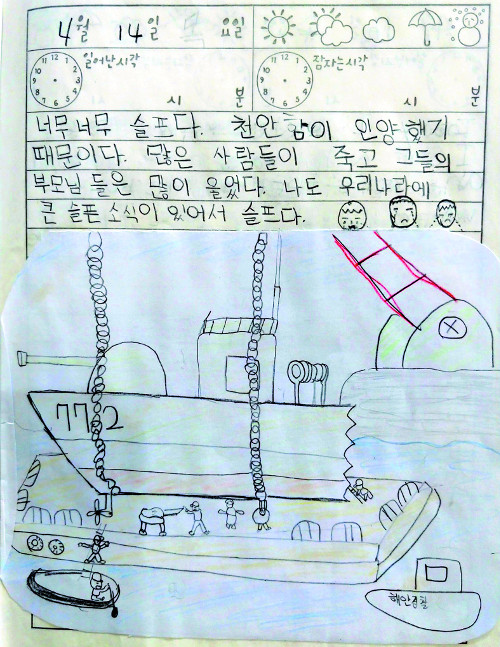 4월 14일 목 요일
일어난시각 잠자는시각
시 분 시 분
너무 너무 슬프다. 천안함이 인양 했기
때문이다. 많은 사람들이 죽고 그들의
부모님 들은 많이 울었다. 나도 우리나라에
큰 슬픈 소식이 있어서 슬프다.
772
해안경찰